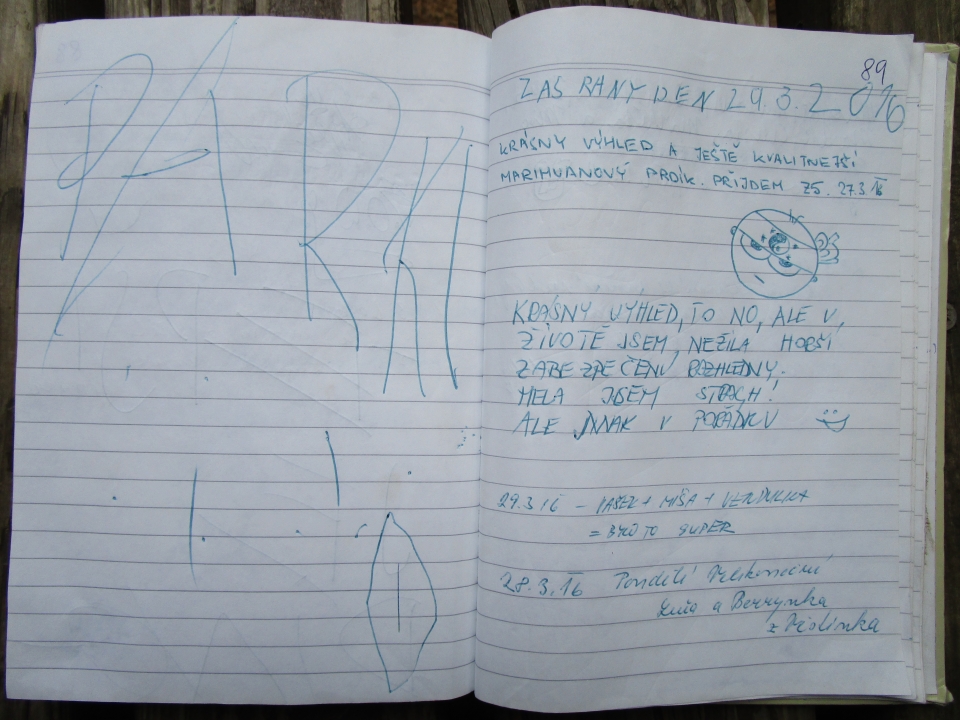 PARKI
89
ZAS RANY DEN 29.3.2016
KRÁSNÝ VÝHLED A JEŠTĚ KVALITNEJŠÍ
MARIHUANOVÝ PRDÍK. PŘIJDEM ZS. 27.3 16
KRÁSNÝ VÝHLED, TO NO, ALE V
ŽIVOTĚ JSEM NEŽILA HORŠÍ
ZABEZPEČENU ROZHLEDNY.
MELA JSEM STRACH!
ALE JINAK V POŘÁDKU
29.3 16 - PAŠEK + MÍŠA + VENDULKA
= BYLO TO SUPER
28.3.16 Pondělí Velikonoční
a Berrynka
z